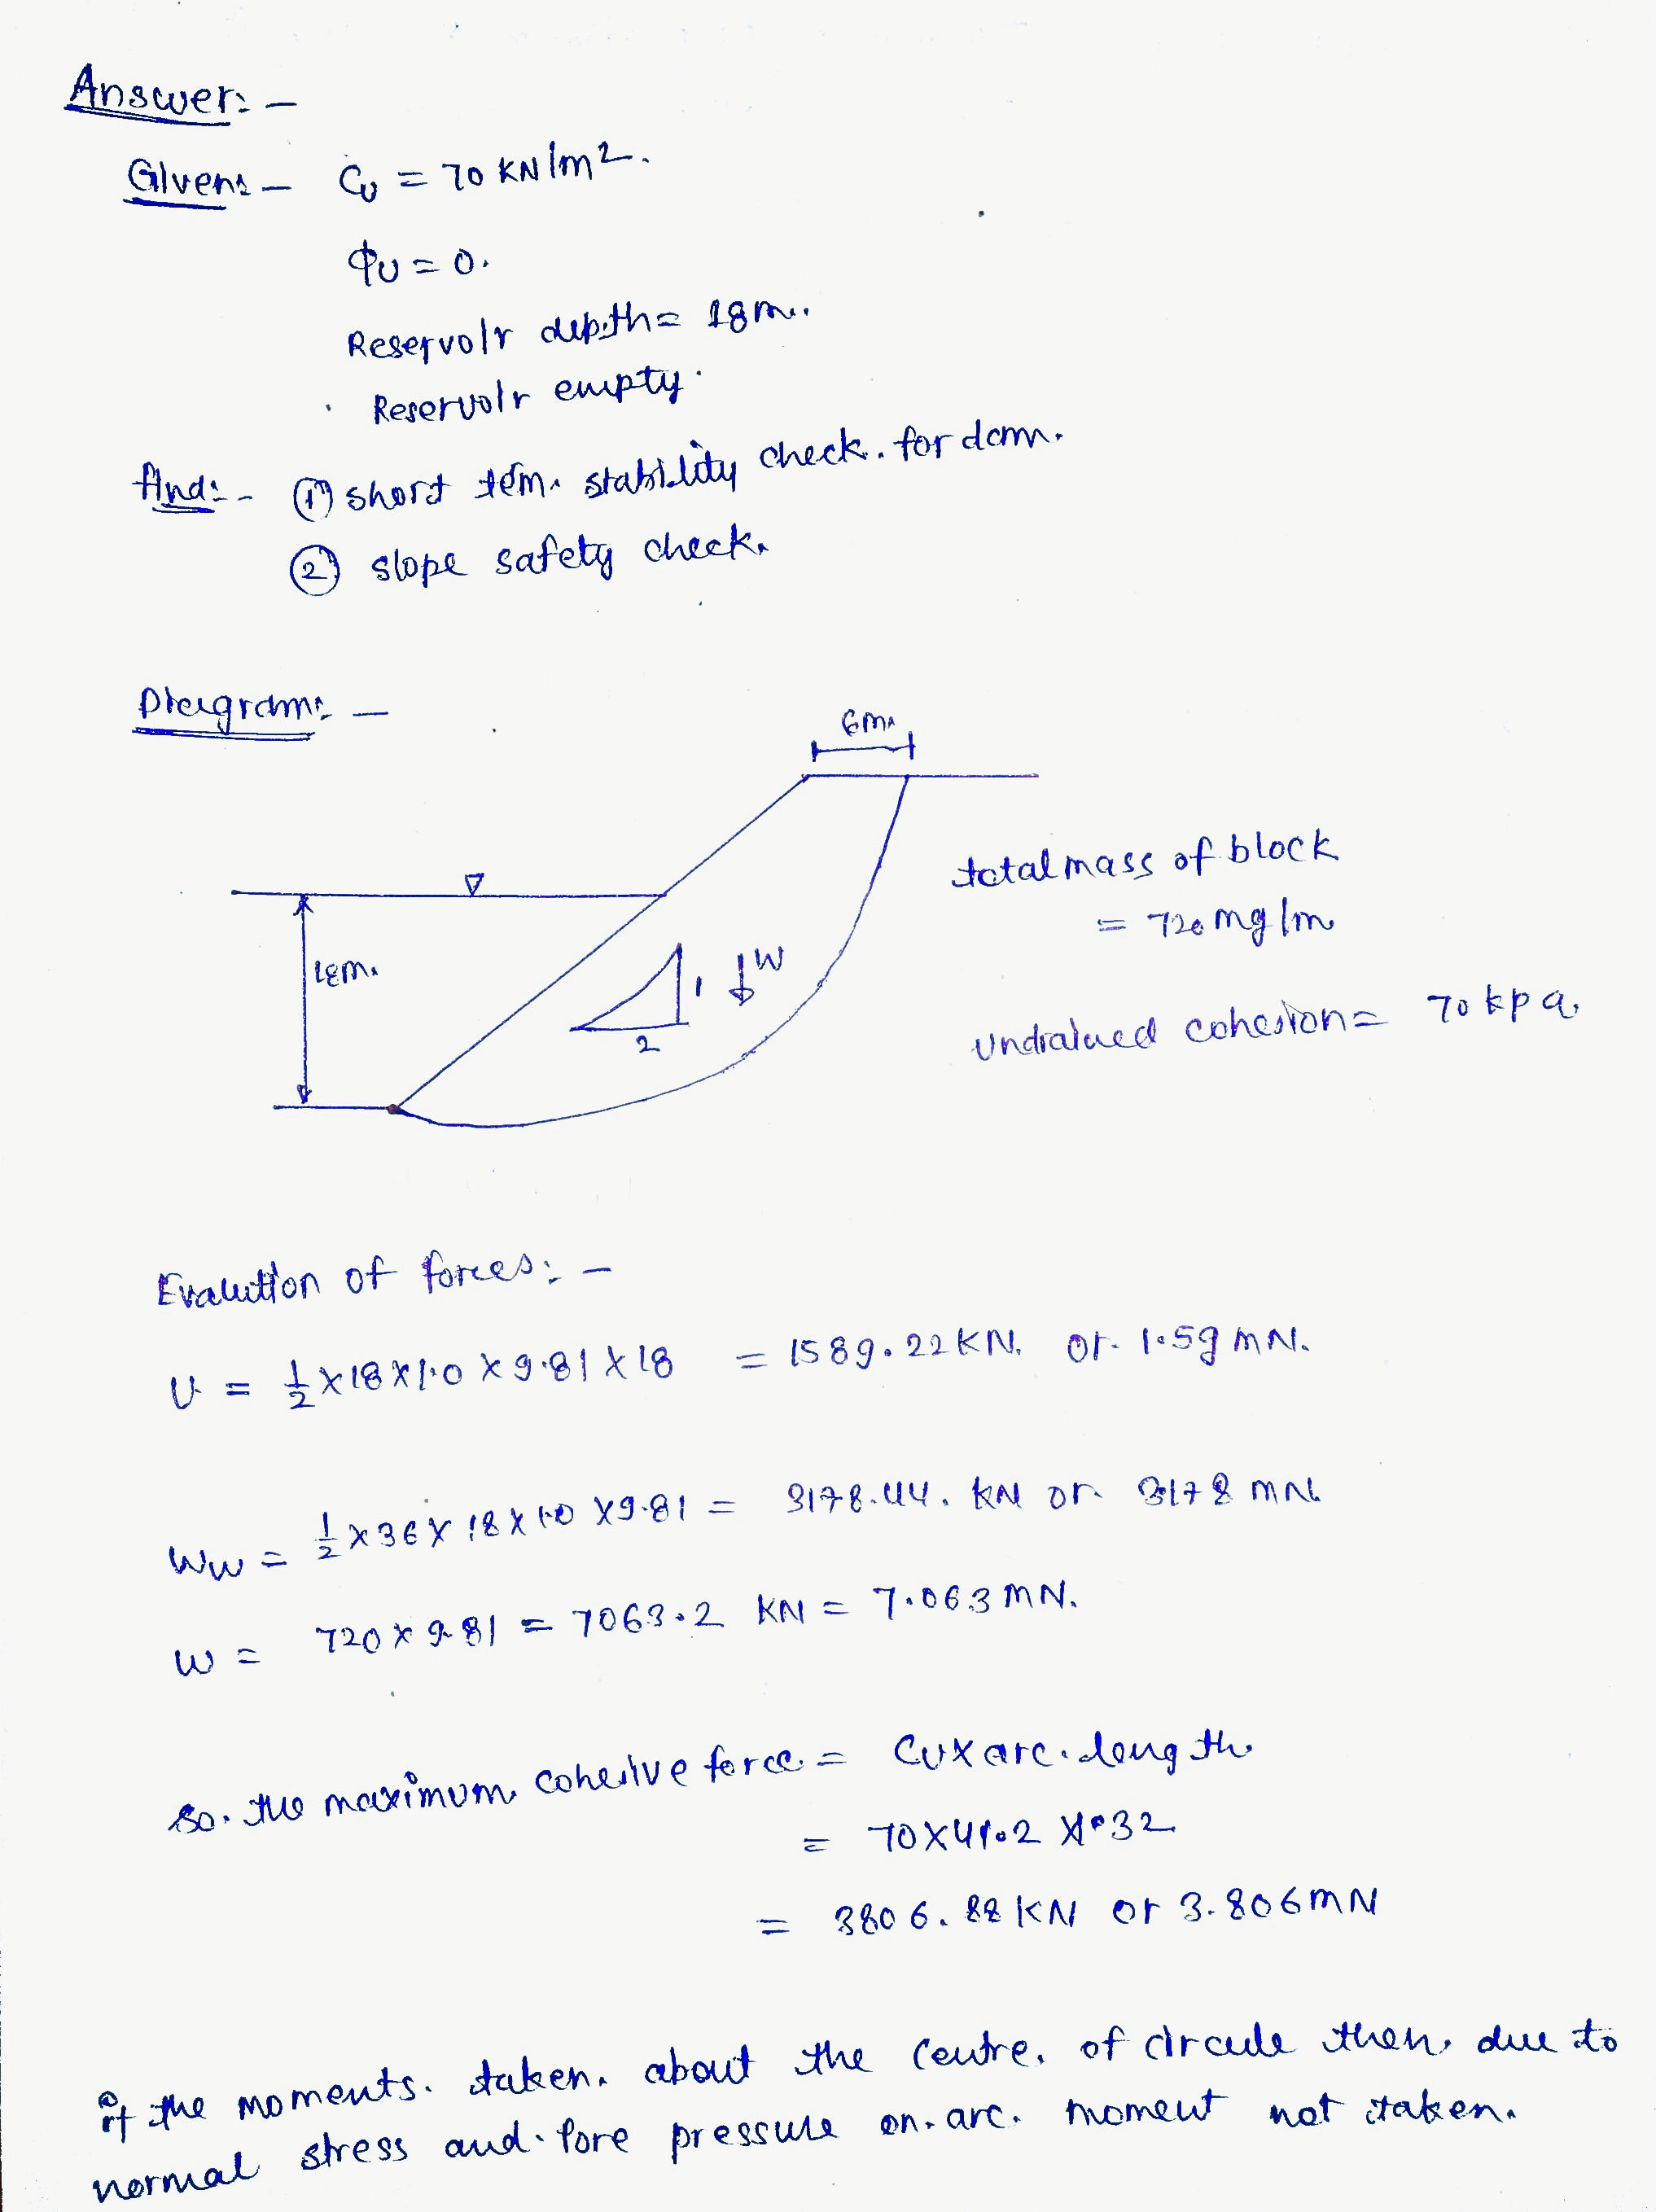 Answer: -
Given: - Cu = 70 KN/m2.
φu = 0.
Reservoir depth = 18m.
Reservoir empty.
find: - (1) short tem. stability check. for dam.
(2) slope safety check.
Diagram: -
6m.
total mass of block
= 720 mg/m
18m.
1
↓W
2
undrained cohesion = 70 kpa.
Evalution of forces: -
U = 1/2 x 18 x 1.0 x 9.81 x 18 = 1589.22 KN. or 1.59 mN.
Ww = 1/2 x 36 x 18 x 1.0 x 9.81 = 3178.44. KN or 3178 mN.
W = 720 x 9.81 = 7063.2 KN = 7.063 mN.
so. the maximum cohesive force = Cu x arc. length
= 70 x 41.2 x 1.32
= 3806.88 KN or 3.806 mN
if the moments. taken. about the centre. of circule then. due to
normal stress and. pore pressure on. arc. moment not taken.